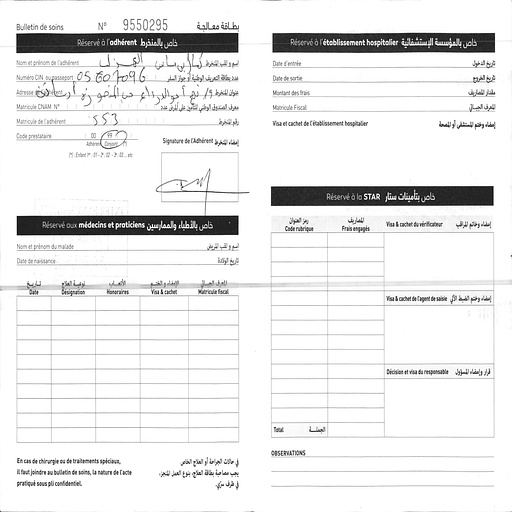 Bulletin de soins N° 9550295 بطاقة معالجة
Réservé à l'adhérent خاص بالمنخرط
Nom et prénom de l'adhérent اسم و لقب المنخرط
Numéro CIN ou passeport 05607096 عدد بطاقة التعريف الوطنية أو جواز السفر
Adresse عنوان المنخرط
Matricule CNAM N°
Matricule de l'adhérent 553 رقم المنخرط
Code prestataire 00 99
Adhérent Conjoint (*)
(*) : Enfant N° : 01 - 2° : 02 - 3° : 03 ... etc
Signature de l'Adhérent إمضاء المنخرط
Réservé aux médecins et praticiens خاص بالأطباء والممارسين
Nom et prénom du malade اسم و لقب المريض
Date de naissance تاريخ الولادة
تاريخ نوعية العلاج الأتعاب الإمضاء و الختم المعرف الجبائي
Date Désignation Honoraires Visa & cachet Matricule fiscal
En cas de chirurgie ou de traitements spéciaux,
il faut joindre au bulletin de soins, la nature de l'acte
pratiqué sous pli confidentiel.
في حالات الجراحة أو العلاج الخاص
يجب مصاحبة بطاقة العلاج، بنوع العمل المنجز،
في ظرف سري.
Réservé à l'établissement hospitalier خاص بالمؤسسة الإستشفائية
Date d'entrée تاريخ الدخول
Date de sortie تاريخ الخروج
Montant des frais مقدار المصاريف
Matricule Fiscal المعرف الجبائي
Visa et cachet de l'établissement hospitalier إمضاء وختم المستشفى أو المصحة
Réservé à la STAR خاص بتأمينات ستار
رمز العنوان المصاريف
Code rubrique Frais engagés
Visa & cachet du vérificateur إمضاء وخاتم المراقب
Visa & cachet de l'agent de saisie إمضاء وختم الضبط الآلي
Décision et visa du responsable قرار وإمضاء المسؤول
Total الجملة
OBSERVATIONS